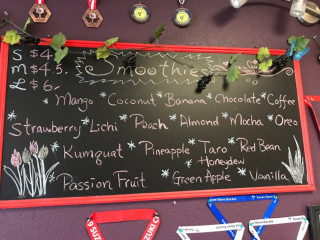 S $4.
M $4.5. Smoothies
L $6.
Mango * Coconut * Banana * Chocolate * Coffee
Strawberry * Lichi * Peach * Almond * Mocha * Oreo
* Kumquat * Pineapple * Taro * Red Bean
* Honeydew
* Passion Fruit * Green Apple * Vanilla
SUZUKI